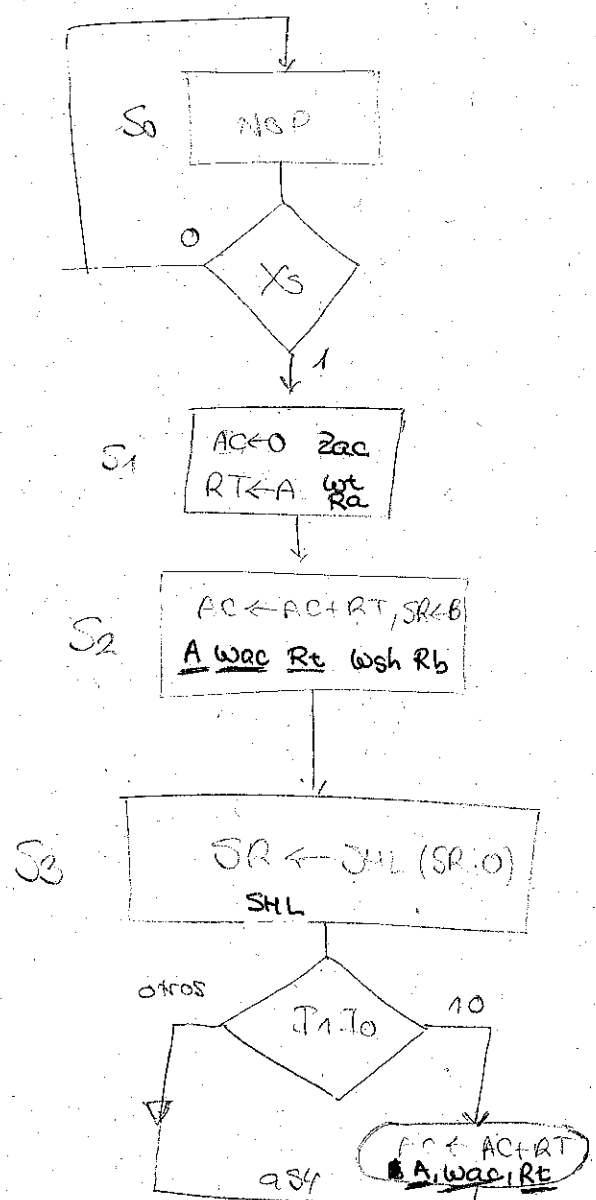 S0
NOP
0
XS
1
S1
AC←0 Zac
RT←A wt
Ra
S2
AC←AC+RT, SR←B
A wac Rt wsh Rb
S3
SR←SHL(SR:0)
SHL
otros
I1 I0
10
AC←AC+RT
A, wac, Rt
a S4